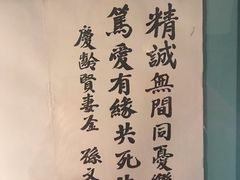 精誠無間同憂
篤愛有緣共死
慶齡賢妻 孫文